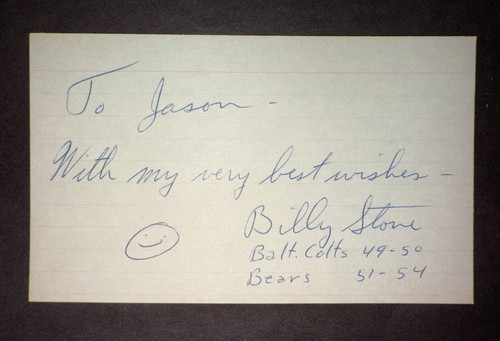 To Jason -
With my very best wishes -
Billy Stone
Balt. Colts 49-50
Bears 51-54